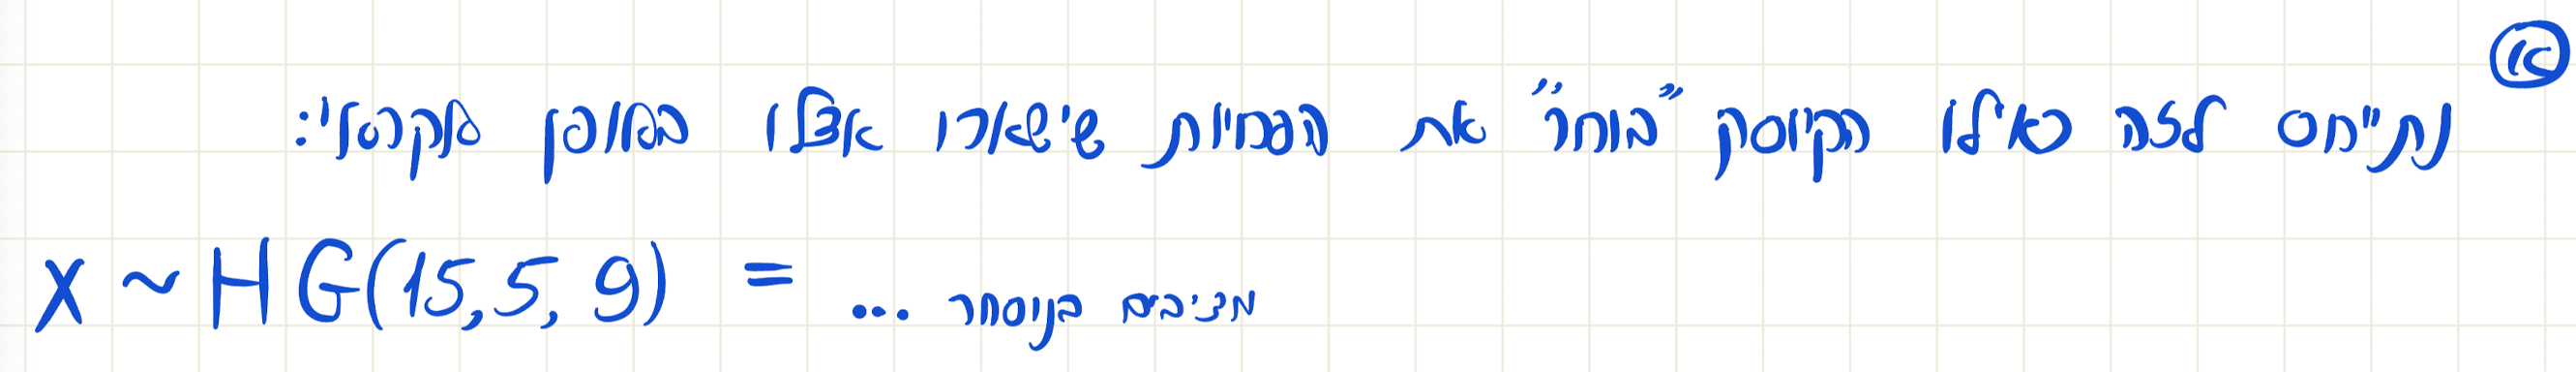 א
נתייחס לזה כאילו הקוסם "בוחר" את הפחיות שישארו אצלו באופן אקראי:
X ~ HG(15,5,9) = ... מציבים בנוסחה